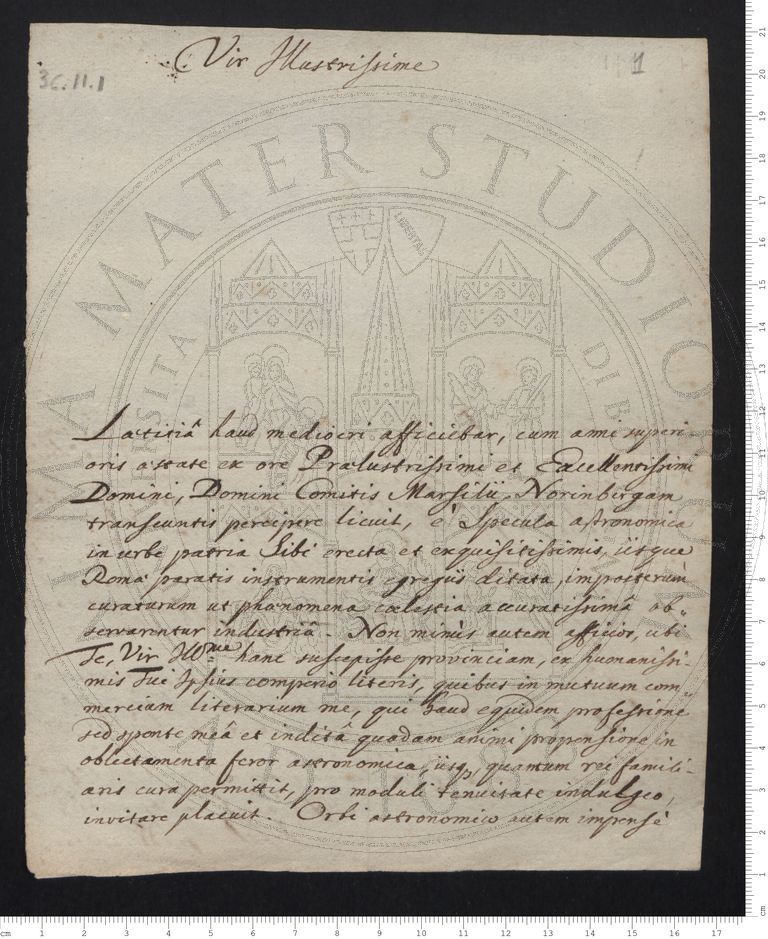 Vir Illustrissime
36.II.1
1
ALMA MATER STUDIORUM
LIBERTAS
Lætitiâ haud mediocri afficiebar, cum anne superi-
oris æstate ex ore Prælustrissimi et Excellentissimi
Domini, Domini Comitis Marsilii, Norinbergam
transeuntis percipere licuit, è Specula astronomica
in urbe patria Sibi erecta et exquisitissimis, iisque
Romæ paratis instrumentis egregiis ditata, imposterum
curaturum ut phænomena cœlestia accuratissimâ ob-
servarentur industriâ. Non minùs autem afficior, ubi
Te, Vir Illme hanc suscepisse provinciam, ex humanissi-
mis Tue Ipsius comperio literis, quibus in mutuum com-
mercium literarium me, qui haud equidem professione
sed sponte meâ et inditâ quadam animi propensione in
oblectamenta feror astronomica, iisq, quantum rei famili-
aris cura permittit, pro moduli tenuitate indulgeo,
invitare placuit. Orbi astronomico autem impensè